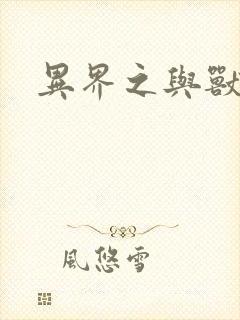 異界之與獸
風悠雪